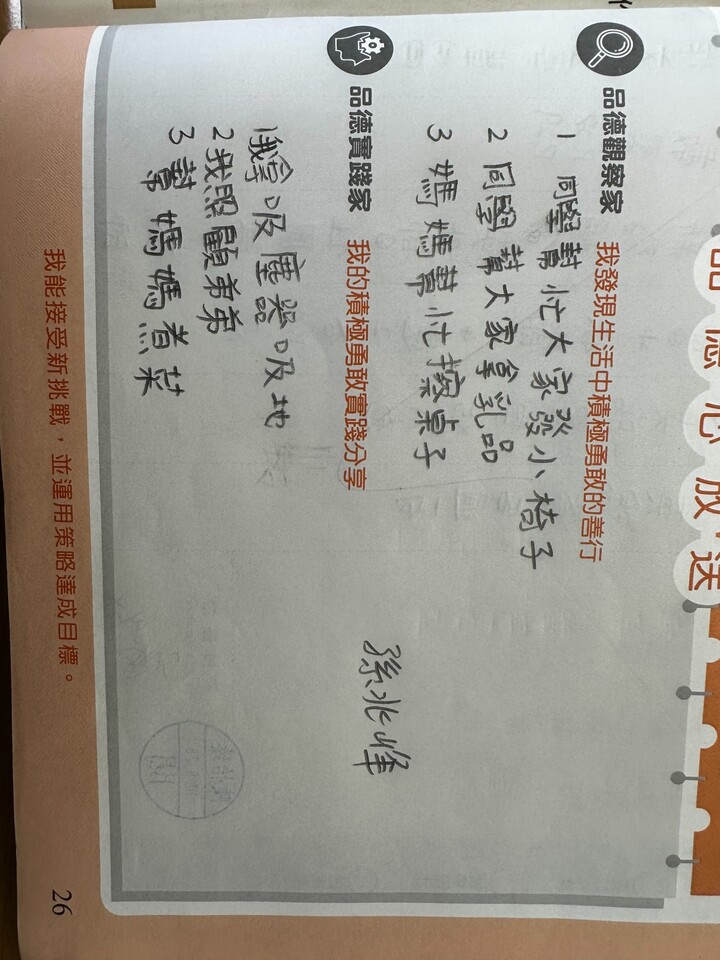 品德心放送
品德觀察家 我發現生活中積極勇敢的善行
1 同學幫忙大家發小椅子
2 同學幫大家拿乳品
3 媽媽幫忙擦桌子
品德實踐家 我的積極勇敢實踐分享
1我拿吸塵器吸地
2我照顧弟弟
3幫媽媽煮菜
孫兆峰
我能接受新挑戰，並運用策略達成目標。
26